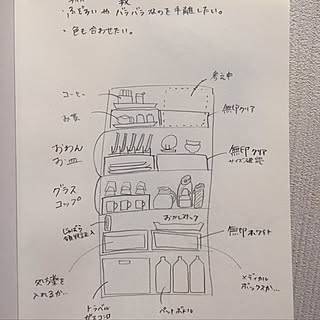 ・ふぞろいや バラバラなのを手離したい。
・色も合わせたい。
考え中
コーヒー
お茶
無印クリア
おわん
お皿
無印クリア
サイズ確認
グラス
コップ
おかしストック
じゃばら
無印ホワイト
処方薬を
入れるか…
メディカル
ボックスか…
トラベル
ペットボトル